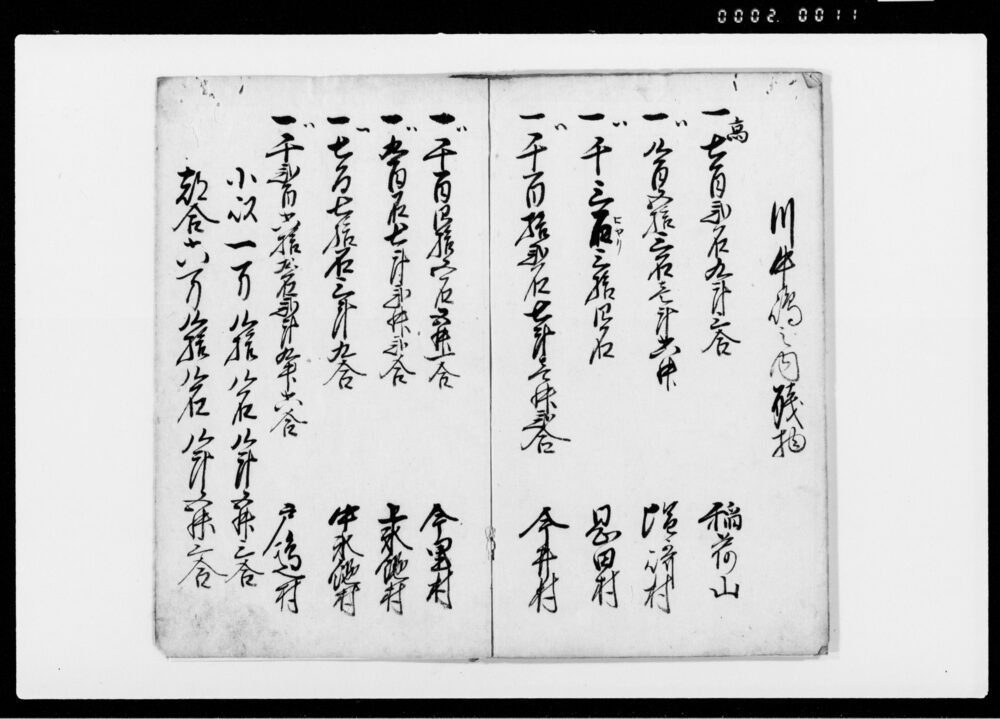 川中嶋之内残物
一高 七百弐石九斗二合 稲荷山
一〃 八百五拾三石壱斗六升 塩崎村
一〃 千三百三拾四石 田村
一〃 千百拾弐石七斗壱升弐合 今井村
一〃 千百四拾五石五升一合 今里村
一〃 九百石七斗弐升弐合 上氷鉋村
一〃 七百七拾石三斗九合 中氷鉋村
一〃 千弐百六拾石弐斗九升六合 戸村
小以一万八拾八石八斗五升二合
都合六万八拾八石八斗五升二合
0002.0011